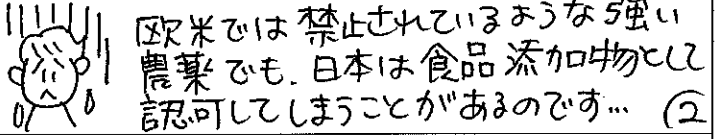 欧米では禁止されているような強い
農薬でも、日本は食品添加物として
認可してしまうことがあるのです… ②